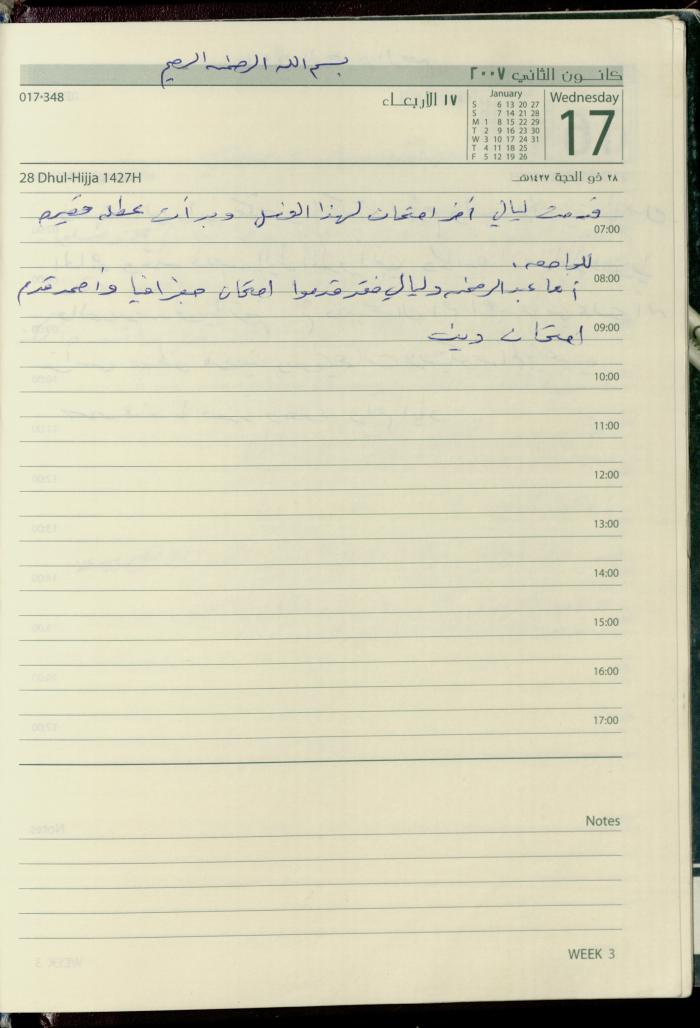 بسم الله الرحمن الرحيم
كانون الثاني ٢٠٠٧
017-348
١٧ الأربعاء
January
S 6 13 20 27
S 7 14 21 28
M 1 8 15 22 29
T 2 9 16 23 30
W 3 10 17 24 31
T 4 11 18 25
F 5 12 19 26
Wednesday
17
28 Dhul-Hijja 1427H
٢٨ ذو الحجة ١٤٢٧هـ
قدمت ليالي آخر امتحان لهذا الفصل وبدأت عطلة قصيرة
07:00
للراحة.
08:00
أما عبدالرحمن وليالي فقد قدموا امتحان جغرافيا وأحمد قدم
09:00
امتحان دين
10:00
11:00
12:00
13:00
14:00
15:00
16:00
17:00
Notes
WEEK 3